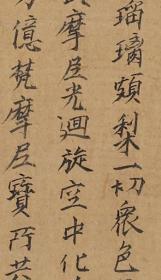 瑠璃頗梨一切衆色
摩尼光迴旋空中化
億梵摩尼寶所共